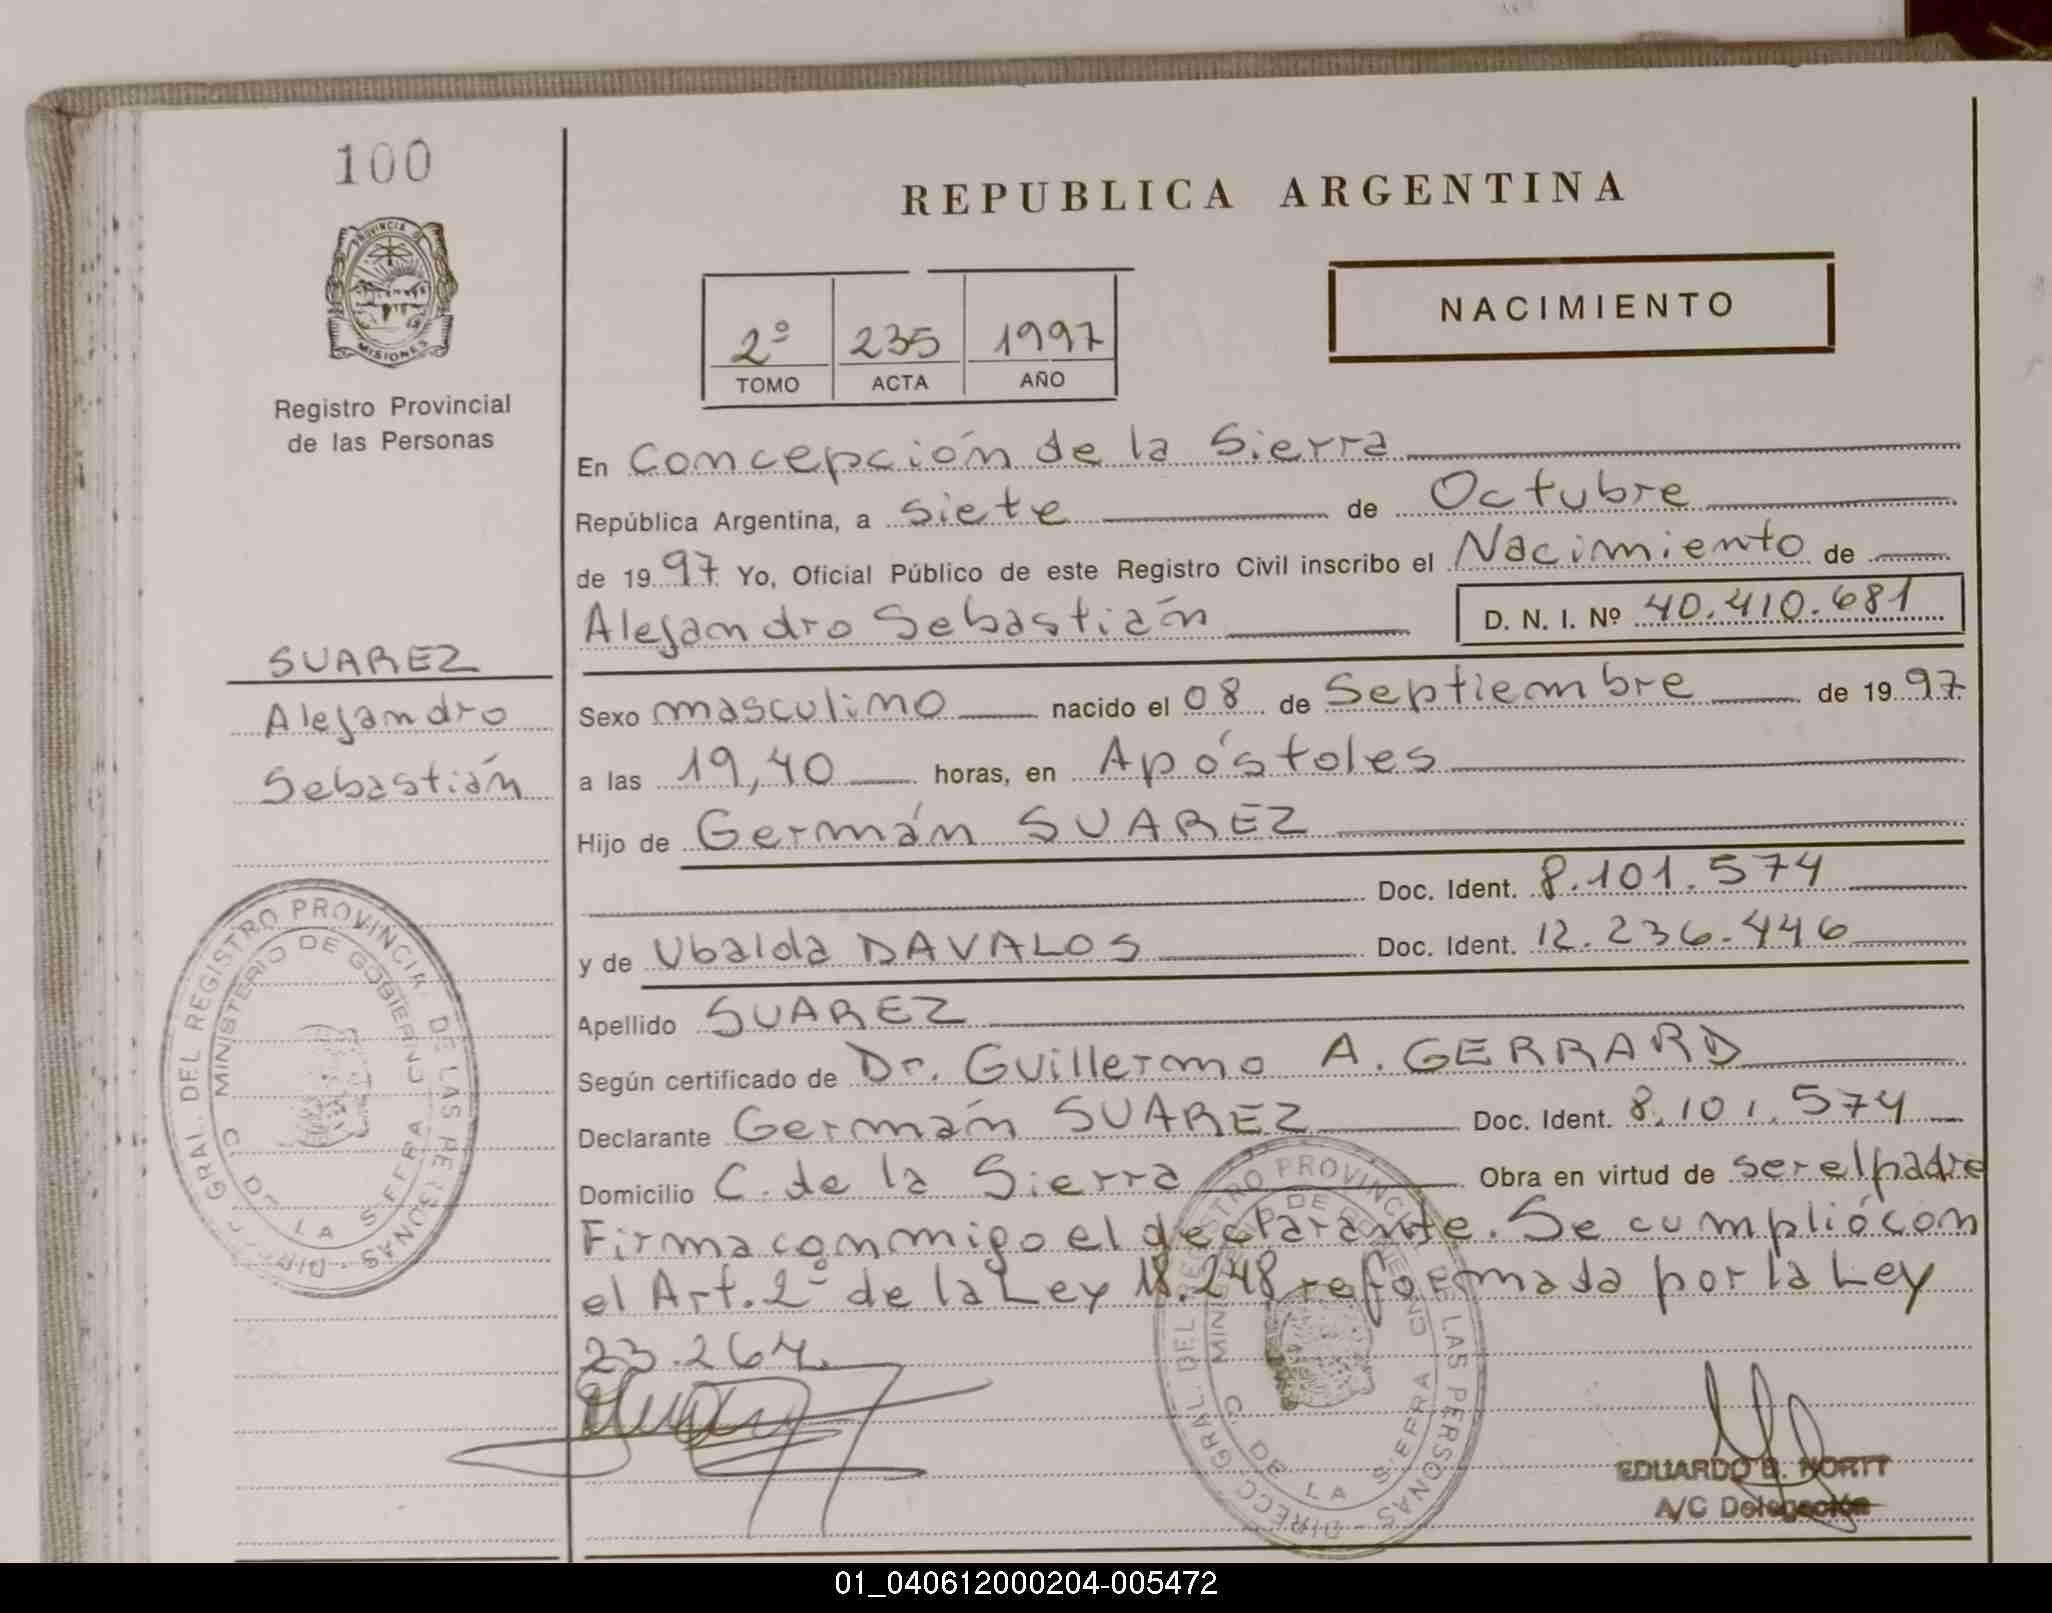 100
PROVINCIA DE
MISIONES
Registro Provincial
de las Personas
SUAREZ
Alejandro
Sebastián
DIRECC. GRAL. DEL REGISTRO PROVINCIAL DE LAS PERSONAS
MINISTERIO DE GOBIERNO
C. DE LA SIERRA
REPUBLICA ARGENTINA
2º 235 1997
TOMO ACTA AÑO
NACIMIENTO
En Concepción de la Sierra
República Argentina, a siete de Octubre
de 1997 Yo, Oficial Público de este Registro Civil inscribo el Nacimiento de
Alejandro Sebastián D. N. I. Nº 40.410.681
Sexo masculino nacido el 08 de Septiembre de 1997
a las 19,40 horas, en Apóstoles
Hijo de Germán SUAREZ
Doc. Ident. 8.101.574
y de Ubalda DAVALOS Doc. Ident. 12.236.446
Apellido SUAREZ
Según certificado de Dr. Guillermo A. GERRARD
Declarante Germán SUAREZ Doc. Ident. 8.101.574
Domicilio C. de la Sierra Obra en virtud de ser el padre
Firma conmigo el declarante. Se cumplió con
el Art. 2º de la Ley 18.248 reformada por la Ley
23.264.
DIRECC. GRAL. DEL REGISTRO PROVINCIAL DE LAS PERSONAS
MINISTERIO DE GOBIERNO
C. DE LA SIERRA
EDUARDO B.
A/C Delegación
01_040612000204-005472